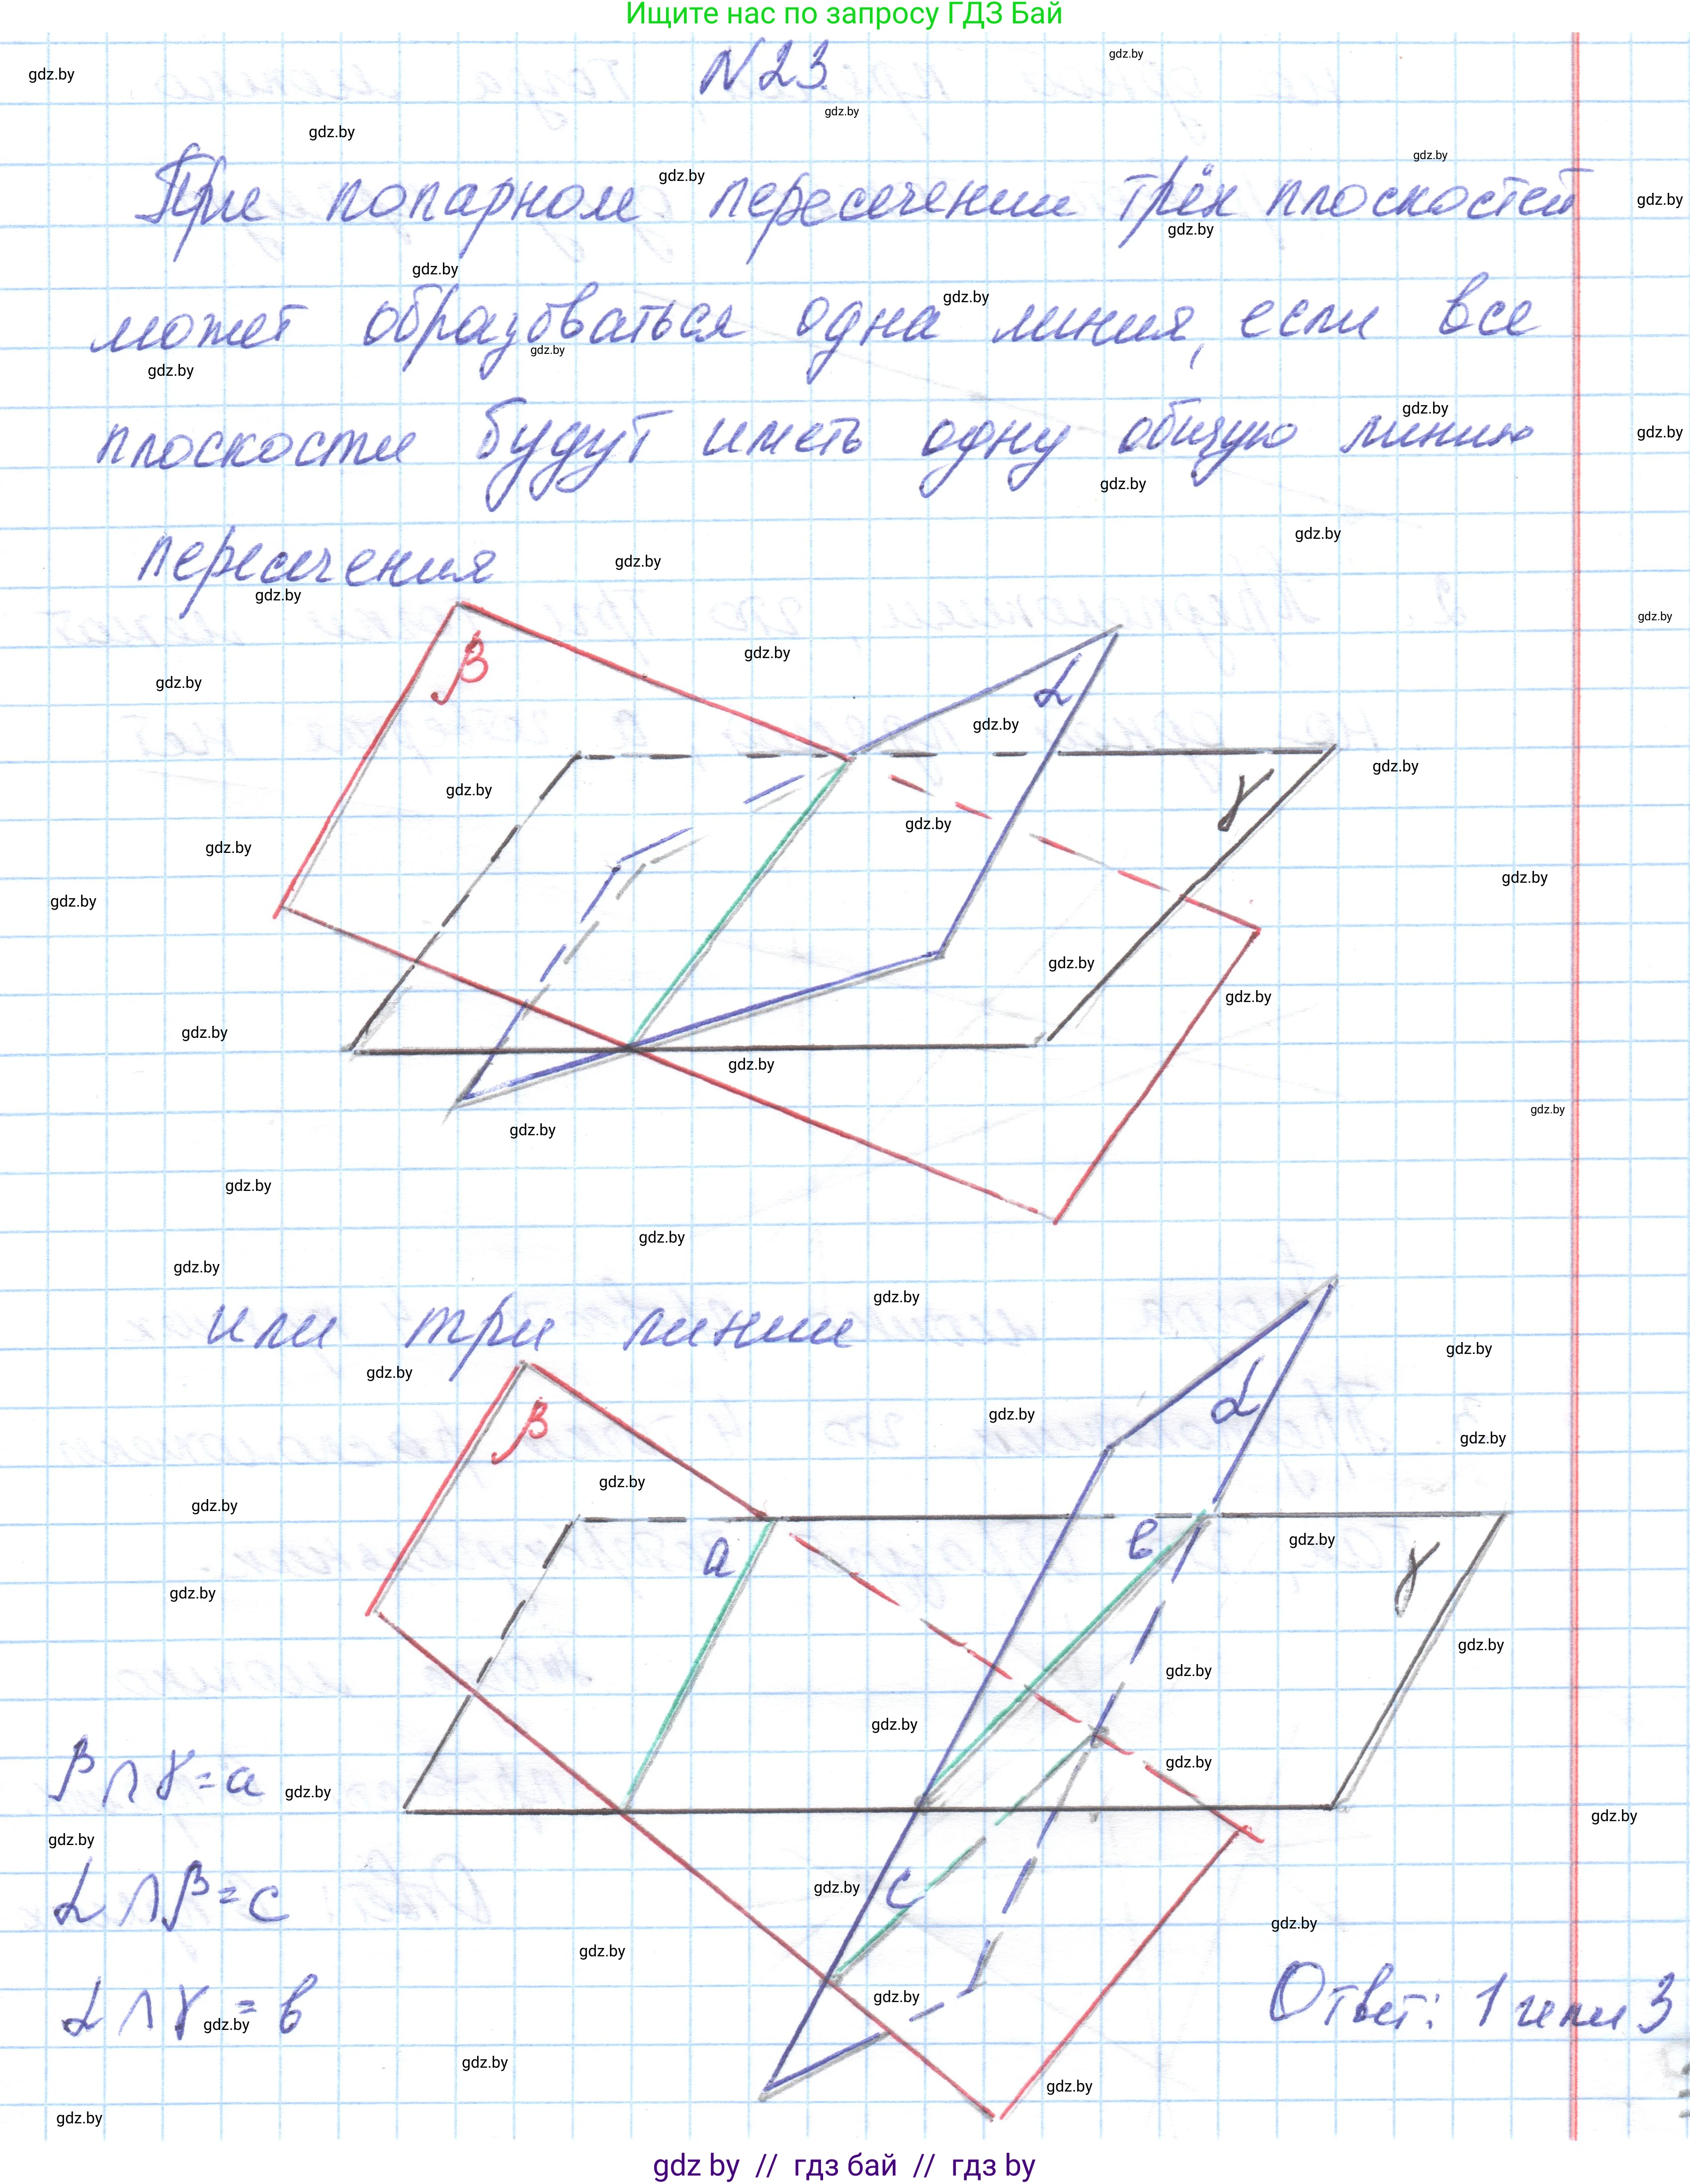 Ищите нас по запросу ГДЗ Бай
N23.
При попарном пересечении трёх плоскостей
может образоваться одна линия, если все
плоскости будут иметь одну общую линию
пересечения
β
α
γ
или три линии
β
α
a
в
γ
c
β∩γ=a
α∩β=c
α∩γ=в
Ответ: 1 или 3
gdz.by
gdz by // гдз бай // гдз by